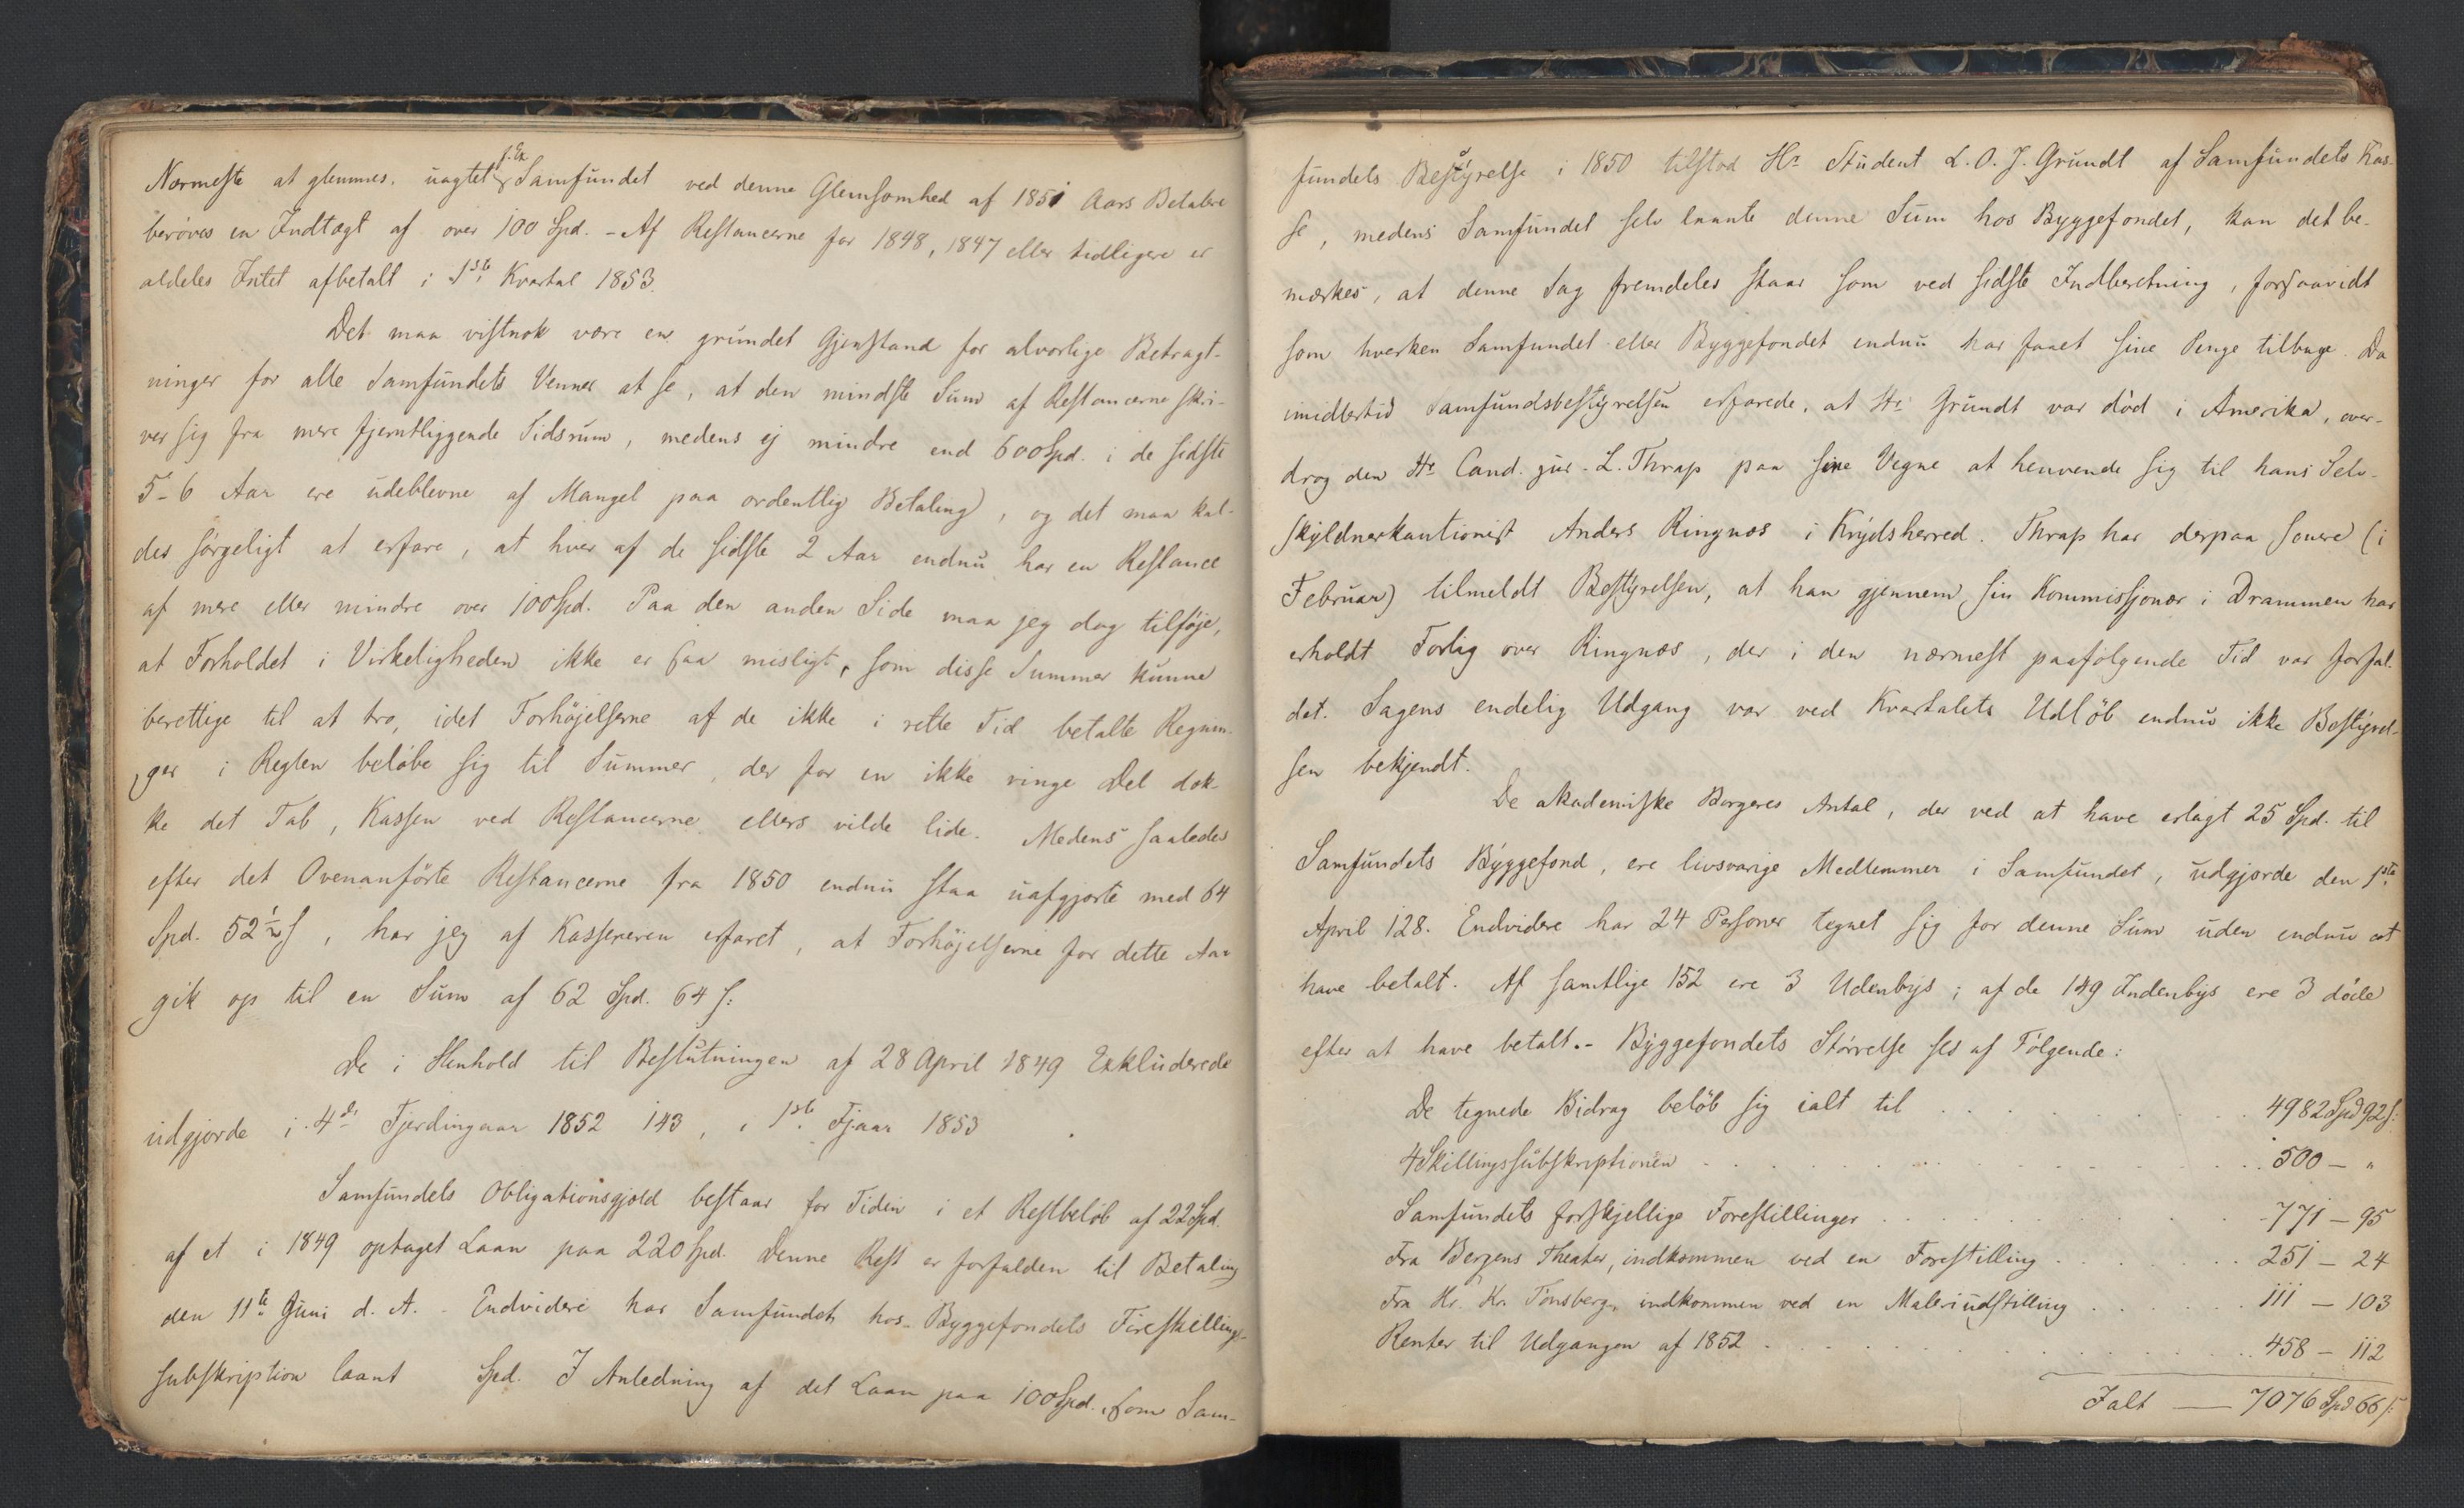 Nærmeste at glemmes, uagtet f. Ex Samfundet ved denne Glemsomhed af 1851 Aars Betalere
berøves en Indtægt af over 100 Spd. - Af Restancerne for 1848, 1847 eller tidligere er
aldeles Intet afbetalt i 1ste Kvartal 1853.
Det maa vistnok være en grundet Gjenstand for alvorlige Betragt-
ninger for alle Samfundets Venner at se, at den mindste Sum af Restancerne skri-
ver sig fra mere fjerntliggende Tidsrum, medens ej mindre end 600 Spd. i de sidste
5-6 Aar ere udeblevne af Mangel paa ordentlig Betaling, og det maa kal-
des sørgeligt at erfare, at hver af de sidste 2 Aar endnu har en Restance
af mere eller mindre over 100 Spd. Paa den anden Side maa jeg dog tilføje,
at Forholdet i Virkeligheden ikke er saa misligt, som disse Summer kunne
berettige til at tro, idet Forhøjelserne af de ikke i rette Tid betalte Regnin-
ger i Reglen beløbe sig til Summer, der for en ikke ringe Del dæk-
ke det Tab, Kassen ved Restancerne ellers vilde lide. Medens saaledes
efter det Ovenanførte Restancerne fra 1850 endnu staa uafgjorte med 64
Spd. 52½ s, har jeg af Kassereren erfaret, at Forhøjelserne for dette Aar
gik op til en Sum af 62 Spd. 64 s:
De i Henhold til Beslutningen af 28 April 1849 Exkluderede
udgjorde i 4de Fjerdingaar 1852 143, i 1ste Fjaar 1853 .
Samfundets Obligationsgjæld bestaar for Tiden i et Restbeløb af 22 Spd.
af et i 1849 optaget Laan paa 220 Spd. Denne Rest er forfalden til Betaling
den 11te Juni d. A. - Endvidere har Samfundet hos Byggefondets Fireskillings-
subskription laant Spd. I Anledning af det Laan paa 100 Spd., som Sam-
fundets Bestyrelse i 1850 tilstod Hr Student L. O. J. Grundt af Samfundets Kas-
se, medens Samfundet selv laante denne Sum hos Byggefondet, kan det be-
mærkes, at denne Sag fremdeles staar som ved sidste Indberetning, forsaavidt
som hverken Samfundet eller Byggefondet endnu har faaet sine Penge tilbage. Da
imidlertid Samfundsbestyrelsen erfarede, at Hr Grundt var død i Amerika, over-
drog den Hr Cand. jur. L. Thrap paa sine Vegne at henvende sig til hans Selv-
skyldnerkautionist Anders Ringnæs i Krydsherred. Thrap har derpaa senere (i
Februar) tilmeldt Bestyrelsen, at han gjennem sin Kommissjonær i Drammen har
erholdt Forlig over Ringnæs, der i den nærmest paafølgende Tid var forfal-
det. Sagens endelig Udgang var ved Kvartalets Udløb endnu ikke Bestyrel-
sen bekjendt.
De akademiske Borgeres Antal, der ved at have erlagt 25 Spd. til
Samfundets Byggefond, ere livsvarige Medlemmer i Samfundet, udgjorde den 1ste
April 128. Endvidere har 24 Personer tegnet sig for denne Sum uden endnu at
have betalt. Af samtlige 152 ere 3 Udenbys; af de 149 Indenbys ere 3 døde
efter at have betalt. - Byggefondets Størrelse ses af Følgende:
De tegnede Bidrag beløb sig ialt til . . . . . . . . 4982 Spd 92 s:
4Skillingssubskriptionen . . . . . . . . . . . 500 - "
Samfundets forskjellige Forestillinger . . . . . . . . 771 - 95
Fra Bergens Theater, indkommen ved en Forestilling . . . . . . 251 - 24
Fra Hr. Kr. Tønsberg, indkommen ved en Maleriudstilling . . . . . 111 - 103
Renter til Udgangen af 1852 . . . . . . . . . . 458 - 112
Ialt — 7076 Spd 66 s: